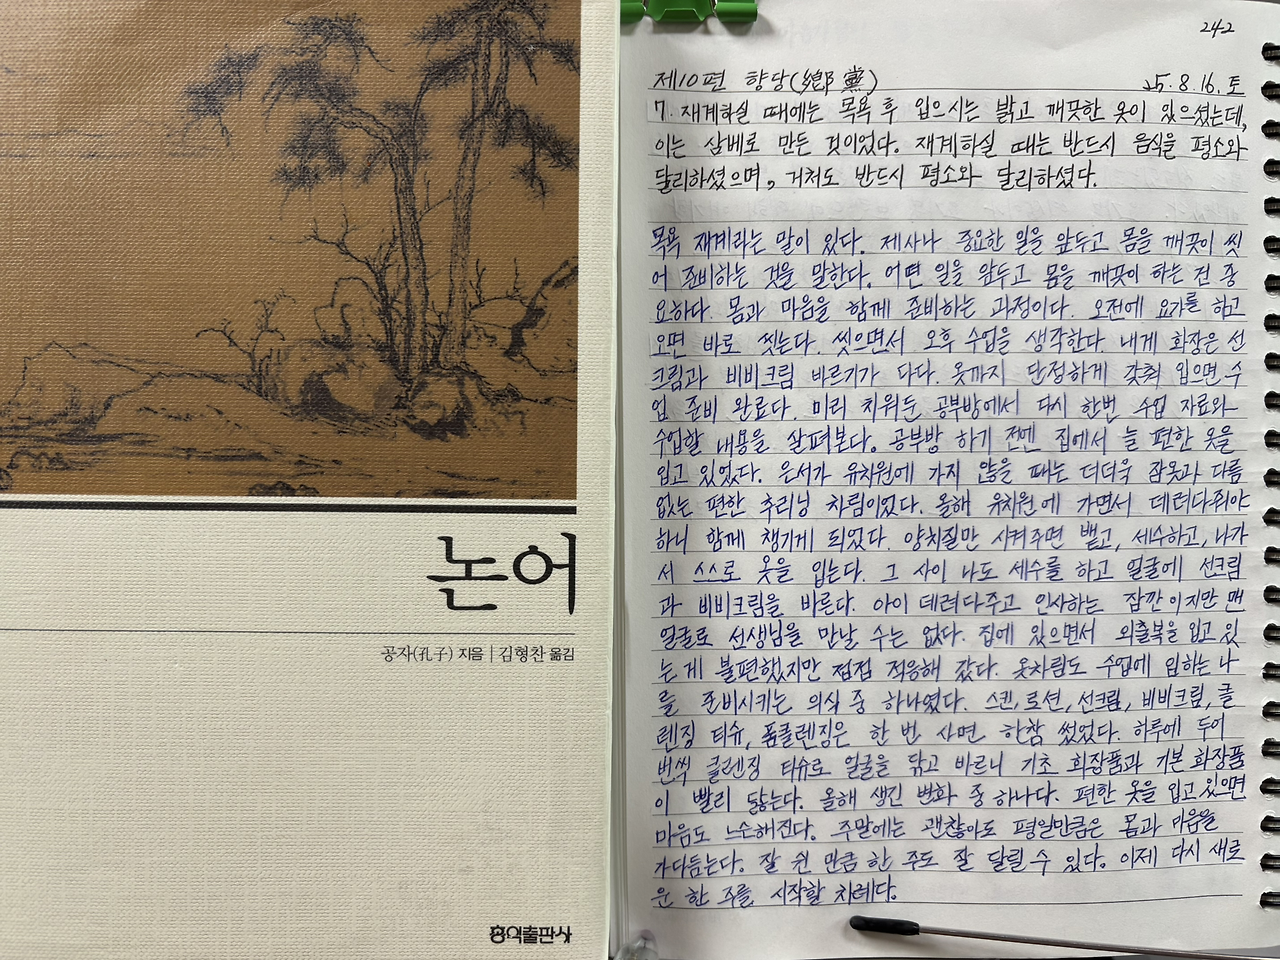 논어
공자(孔子) 지음 | 김형찬 옮김
홍익출판사
24-2
제10편 향당(鄕黨) 25.8.16.토
7. 재계하실 때에는 목욕 후 입으시는 밝고 깨끗한 옷이 있으셨는데,
이는 삼베로 만든 것이었다. 재계하실 때는 반드시 음식을 평소와
달리하셨으며, 거처도 반드시 평소와 달리하셨다.
목욕 재계라는 말이 있다. 제사나 중요한 일을 앞두고 몸을 깨끗이 씻
어 준비하는 것을 말한다. 어떤 일을 앞두고 몸을 깨끗이 하는 건 중
요하다. 몸과 마음을 함께 준비하는 과정이다. 오전에 요가를 하고
오면 바로 씻는다. 씻으면서 오후 수업을 생각한다. 내게 화장은 선
크림과 비비크림 바르기가 다다. 옷까지 단정하게 갖춰 입으면 수
업 준비 완료다. 미리 치워둔 공부방에서 다시 한번 수업 자료와
수업할 내용을 살펴본다. 공부방 하기 전엔 집에서 늘 편한 옷을
입고 있었다. 은서가 유치원에 가지 않을 때는 더더욱 잠옷과 다름
없는 편한 추리닝 차림이었다. 올해 유치원에 가면서 데려다줘야
하니 함께 챙기게 되었다. 양치질만 시켜주면 뱉고, 세수하고, 나가
서 스스로 옷을 입는다. 그 사이 나도 세수를 하고 얼굴에 선크림
과 비비크림을 바른다. 아이 데려다주고 인사하는 잠깐이지만 맨
얼굴로 선생님을 만날 수는 없다. 집에 있으면서 외출복을 입고 있
는게 불편했지만 점점 적응해 갔다. 옷차림도 수업에 임하는 나
를 준비시키는 의식 중 하나였다. 스킨, 로션, 선크림, 비비크림, 클
렌징 티슈, 폼클렌징은 한 번 사면 한참 썼었다. 하루에 두어
번씩 클렌징 티슈로 얼굴을 닦고 바르니 기초 화장품과 기본 화장품
이 빨리 닳는다. 올해 생긴 변화 중 하나다. 편한 옷을 입고 있으면
마음도 느슨해진다. 주말에는 괜찮아도 평일만큼은 몸과 마음을
가다듬는다. 잘 쉰 만큼 한 주도 잘 달릴 수 있다. 이제 다시 새로
운 한 주를 시작할 차례다.